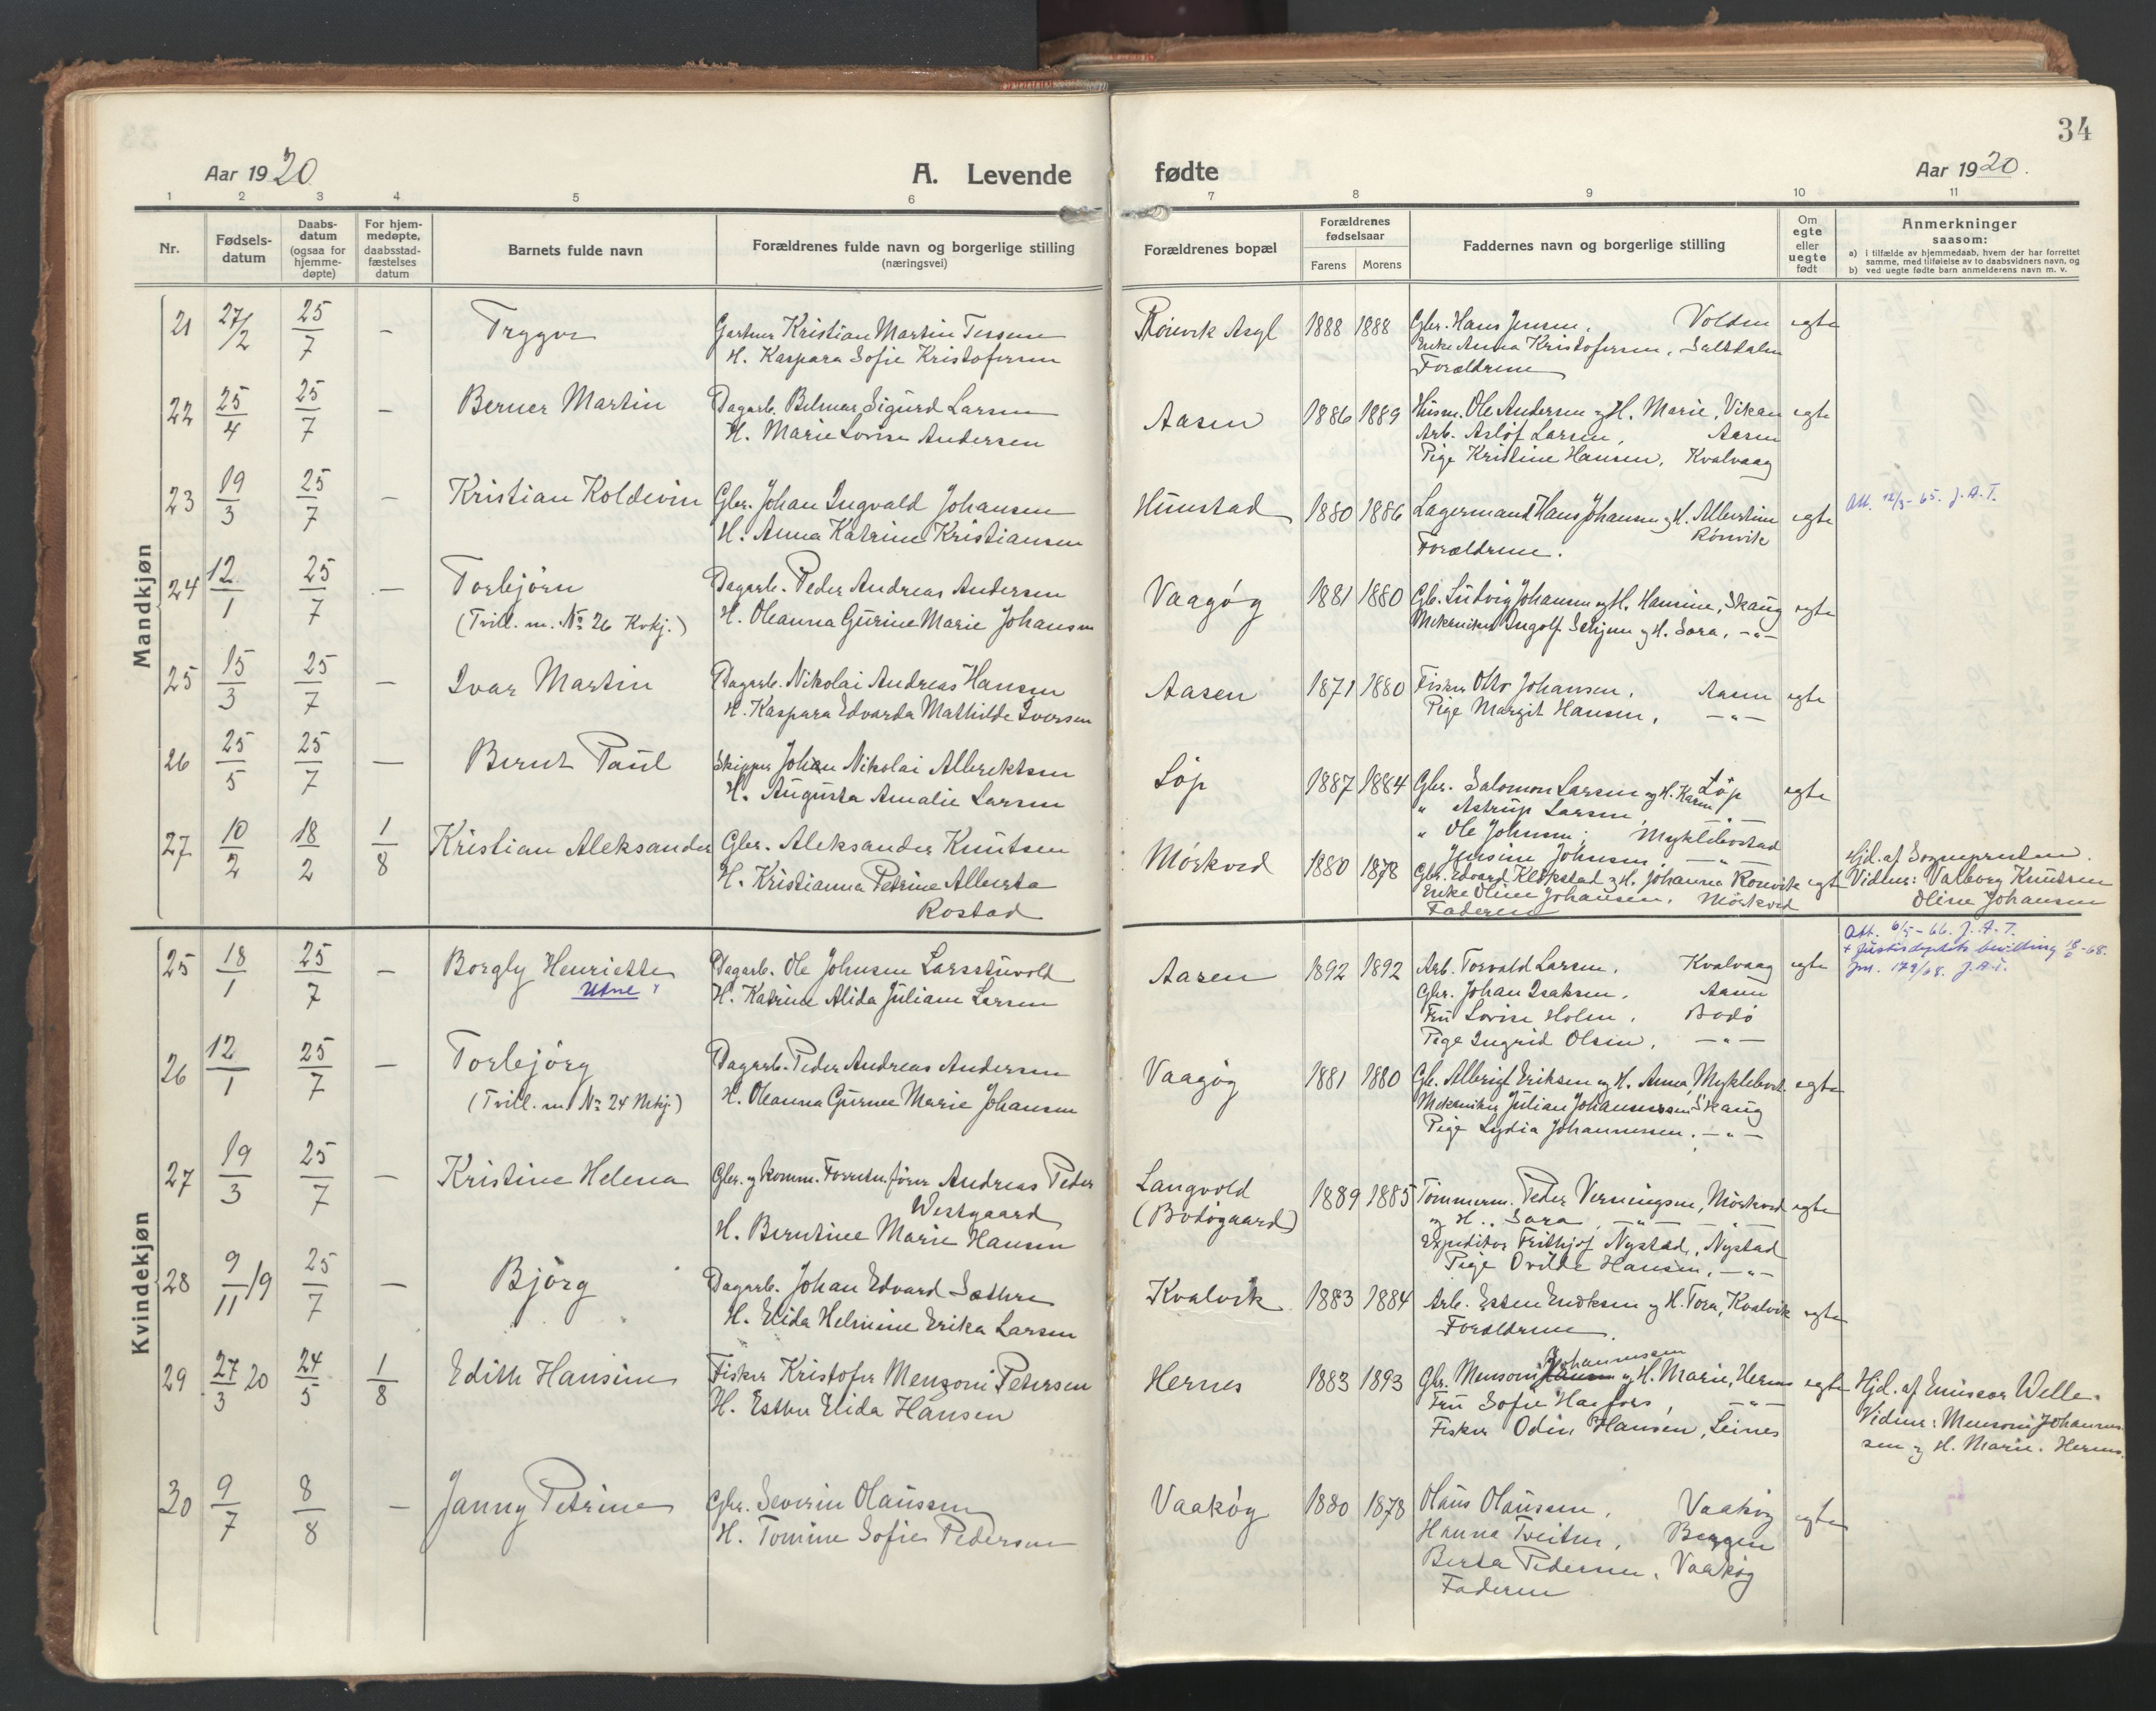 34
Aar 1920.
A. Levende
fødte
Aar 1920.
1 2 3 4 5 6 7 8 9 10 11
Nr.
Fødsels-
datum
Daabs-
datum
(ogsaa for
hjemme-
døpte)
For hjem-
medøpte,
daabsstad-
fæstelses
datum
Barnets fulde navn
Forældrenes fulde navn og borgerlige stilling
(næringsvei)
Forældrenes bopæl
Forældrenes
fødselsaar
Farens Morens
Faddernes navn og borgerlige stilling
Om
egte
eller
uegte
født
Anmerkninger
saasom:
a) i tilfælde av hjemmedaab, hvem der har forrettet
samme, med tilføielse av to daabsvidners navn, og
b) ved uegte fødte barn anmelderens navn m. v.
Mandkjøn
21 27/2 25/7 – Trygve
Gartner Kristian Martin Jensen
H. Kaspara Sofie Kristofersen
Rönvik Asyl 1888 1888
Gbr. Hans Jensen, Volden egte
Enke Anna Kristofersen, Saltdalen
Forældrene
22 25/4 25/7 – Berner Martin
Dagarb. Bilmar Sigurd Larsen
H. Marie Lovise Andersen
Aasen 1886 1889
Husm. Ole Andersen og H. Marie, Vikan egte
Arb. Asløf Larsen, Aasen
Pige Kristine Hansen, Kvalvaag
23 19/3 25/7 – Kristian Koldevin
Gbr. Johan Ingvald Johansen
H. Anna Katrine Kristiansen
Hunstad 1880 1886
Lagermand Hans Johansen og H. Albertine egte
Rönvik
Forældrene.
Att. 12/3-65. J.A.T.
24 12/1 25/7 – Torbjörn
(Tvill. m. No 26 Kvkj.)
Dagarb. Peder Andreas Andersen
H. Oleanna Gurine Marie Johansen
Vaagøy 1881 1880
Gb. Ludvig Johansen og H. Hansine, Skaug egte
Mekaniker Ingolf Schjem og H. Sara, –"–
25 15/3 25/7 – Ivar Martin
Dagarb. Nikolai Andreas Hansen
H. Kaspara Edvarda Mathilde Iversen
Aasen 1871 1880
Fisker Otto Johansen, Aasen egte
Pige Margit Hansen, –"–
26 25/5 25/7 – Bernt Paul
Skipper Johan Nikolai Albriktsen
H. Augusta Amalie Larsen
Løp 1887 1884
Gbr. Salomon Larsen og H. Karen, Løp egte
" Astrup Larsen, –"–
" Ole Johnsen, Myklebostad
Jensine Johnsen, –"–
27 10/2 18/2 1/8 Kristian Aleksander
Gbr. Aleksander Knutsen
H. Kristianna Petrine Alberta
Rostad
Mörkved 1880 1878
Gbr. Edvard Klokstad og H. Johanna Rönvik egte
Enke Oline Johansen, Mörkved
Faderen
Hjd. af Sogneprесten.
Vidner: Valborg Knutsen
Oline Johansen
Kvindekjøn
25 18/1 25/7 – Borgly Henriette
Utne +
Dagarb. Ole Johnsen Larsstuvold
H. Katrine Alida Juliane Larsen
Aasen 1892 1892
Arb. Torvald Larsen, Kvalvaag egte
Gbr. Johan Isaksen, Aasen
Fru Lovise Holm, Bodö
Pige Ingrid Olsen, –"–
Att. 6/5-66. J.A.T.
+ Justisdeptets bevilling 18/6-68.
Jnr. 179/68. J.A.T.
26 12/1 25/7 – Torbjörg
(Tvill. m. No 24 Mkj.)
Dagarb. Peder Andreas Andersen
H. Oleanna Gurine Marie Johansen
Vaagøy 1881 1880
Gb. Albrigt Eriksen og H. Anna, Myklebost. egte
Mekaniker Julian Johannessen Skaug
Pige Lydia Johannessen, –"–
27 19/3 25/7 – Kristine Helena
Gbr. og komm. Forretn.fører Andreas Peder
Westgaard
H. Berntine Marie Hansen
Langvold
(Bodøgaard) 1889 1885
Tömmerm. Peder Verningsen, Mörkved egte
og H. Sara, –"– –"–
Expeditør Frithjof Nystad, Nystad
Pige Ovilde Hansen, –"–
28 9/11 19 25/7 – Bjørg
Dagarb. Johan Edvard Sæthre
H. Elida Helmine Erika Larsen
Kvalvik 1883 1884
Arb. Esten Endresen og H. Tora, Kvalvik egte
Forældrene.
29 27/3 20 24/5 1/8 Edith Hansine
Fisker Kristofer Menzoni Petersen
H. Esther Elida Hansen
Hernes 1883 1893
Johannessen
Gbr. Mensoni Hansen og H. Marie, Hernes egte
Fru Sofie Hasfors, –"–
Fisker Odin Hansen, Leines
Hjd. af Emissær Welle.
Vidner: Mensoni Johannes-
sen og H. Marie. Hernes.
30 9/7 8/8 – Janny Petrine
Gbr. Severin Olaussen
H. Tomine Sofie Pedersen
Vaakøy 1880 1878
Olaus Olaussen, Vaakøy egte
Hanna Tveiten, Bergen
Berta Pedersen, Vaakøy
Faderen